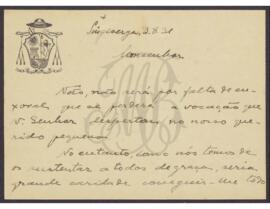 Singeverga, 3.8.31
Monsenhor
Noto, não será por falta de en-
xoval que se perderá a vocação que
N. Senhor despertou no nosso que-
rido pequeno.
No entanto, como nós temos de
os sustentar a todos de graça, seria
grande caridade conseguir-me todo